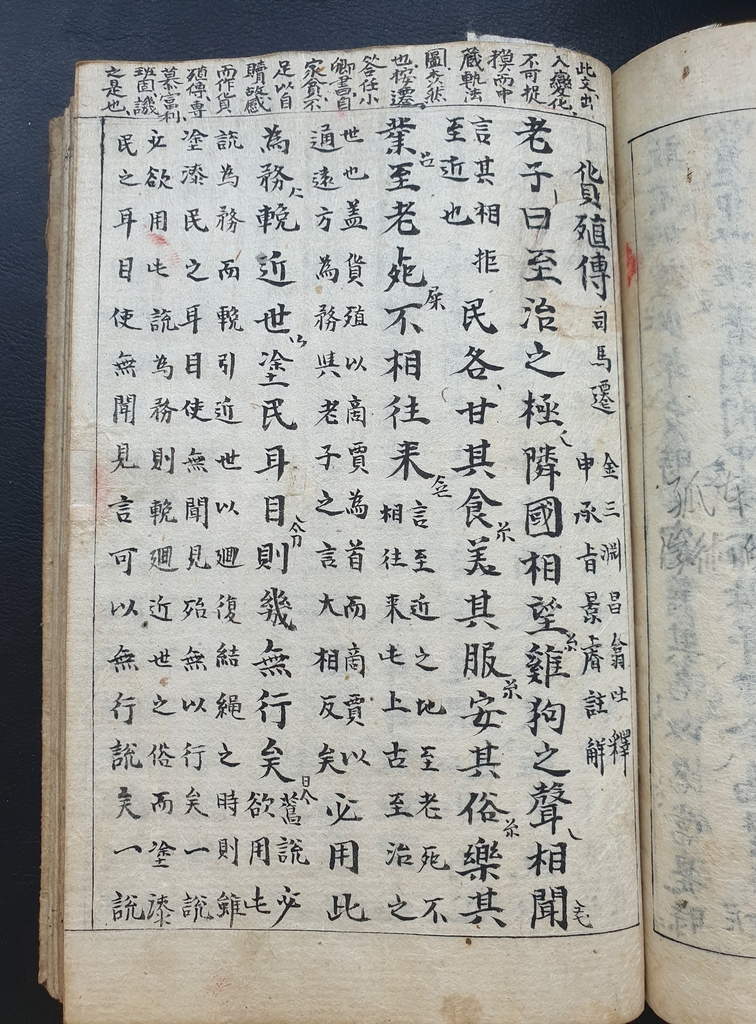 此文出
入變化
不可捉
摸而申
蔵軌法
圖秀然
也按遷
答任小
卿書自
家貧不
足以自
贖故感
而作貨
殖傳專
慕富利
班固譏
之是也
貨殖傳 司馬遷 金三淵昌翕吐釋
申承旨景濬註解
老子曰至治之極隣國相望雞狗之聲相聞
言其相拒
至近也
民各甘其食美其服安其俗樂其
業至老死不相往来
言至近之地至老死不
相往来此上古至治之
世也盖貨殖以商賈為首而商賈以
通遠方為務與老子之言大相反矣
必用此
為務輓近世塗民耳目則幾無行矣
鶩說必
欲用此
說為務而輓引近世以廻復結繩之時則雖
塗漆民之耳目使無聞見殆無以行矣一說
必欲用此說為務則輓廻近世之俗而塗漆
民之耳目使無聞見言可以無行說矣一說